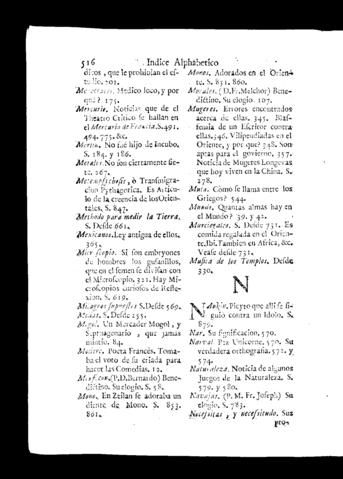 516 Indice Alphabetico
dicos, que le prohibian el es-
tudio. 203.
Medico loco, y por
què? 175.
Mercurio. Noticias que de el
Theatro Critico se hallan en
el Mercurio de Francia. S. 491.
494. 775. &c.
Merlin. No fue hijo de incubo.
S. 184. y 186.
Metales. No son ciertamente sie-
te. 267.
Metempsychosis, ò Transmigra-
cion Pythagorica. Es Articu-
lo de la creencia de los Orien-
tales. S. 847.
Methodo para medir la Tierra.
S. Desde 661.
Mexicanos. Ley antigua de ellos.
365.
Microscopio. Si son embryones
de hombres los gusanillos,
que en el semen se divisan con
el Microscopio. 321. Hay Mi-
croscopios curiosos de Refle-
xion. S. 619.
Milagros supuestos S. Desde 569.
Modas. S. Desde 255.
Mogol. Un Mercader Mogol, y
Septuagenario, que jamàs
mintiò. 84.
Moliere. Poeta Francès. Toma-
ba el voto de su criada para
hacer las Comedias. 12.
(P.D. Bernardo) Bene-
dictino. Su elogio. S. 58.
Mono. En Zeilan se adoraba un
diente de Mono. S. 853.
861.
Monos. Adorados en el Orien-
te. S. 851. 860.
Morales. (D. Fr. Melchor) Bene-
dictino. Su elogio. 107.
Mugeres. Errores encontrados
acerca de ellas. 345. Blas-
femia de un Escritor contra
ellas. 346. Vilipendiadas en el
Oriente, y por què? 348. Son
aptas para el govierno. 357.
Noticia de Mugeres Longevas
que hoy viven en la China. S.
278.
Mula. Còmo se llama entre los
Griegos? 544.
Mundo. Quantas almas hay en
el Mundo? 39. y 42.
Murcielagos. S. Desde 731. Es
comida regalada en el Orien-
te. Ibi. Tambien en Africa, &c.
Vease desde 731.
Musica de los Templos. Desde
330.
N
Pleyto que alli se si-
guiò contra un Idolo. S.
879.
Nar. Su significacion. 570.
Narval. Pez Unicorne. 570. Su
verdadera orthografia. 571. y
574.
Naturaleza. Noticia de algunos
Juegos de la Naturaleza. S.
579. y 580.
Navajas. (P. M. Fr. Joseph) Su
elogio. S. 783.
Necessitas, y necessitudo. Sus
pro-